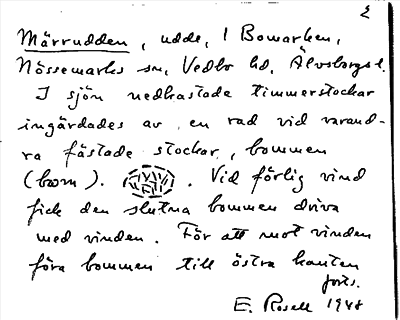 2
Märrudden, udde, i Bowarken,
Nössemarks sn, Vedbo hd, Älvsborgs l.
I sjön nedkastade timmerstockar
ingärdades av en rad vid varand-
ra fästade stockar, bommen
(bɷm). . Vid förlig vind
fick den slutna bommen driva
med vinden. För att mot vinden
föra bommen till östra kanten
forts.
E. Rosell 1948